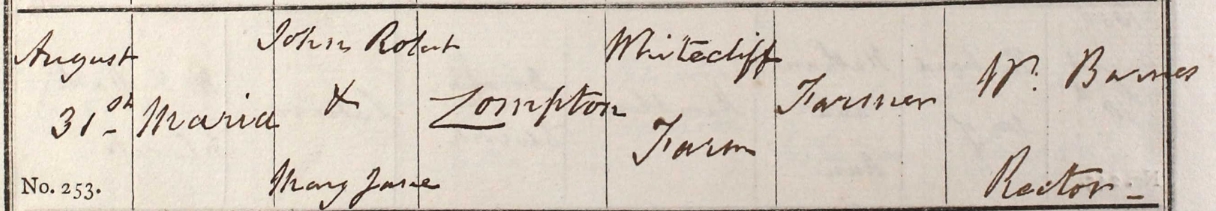 August
31st
No. 253.
Maria
John Robert
&
Mary Jane
Lompton
Whitecliff
Farm
Farmer
Wm. Barnes
Rector